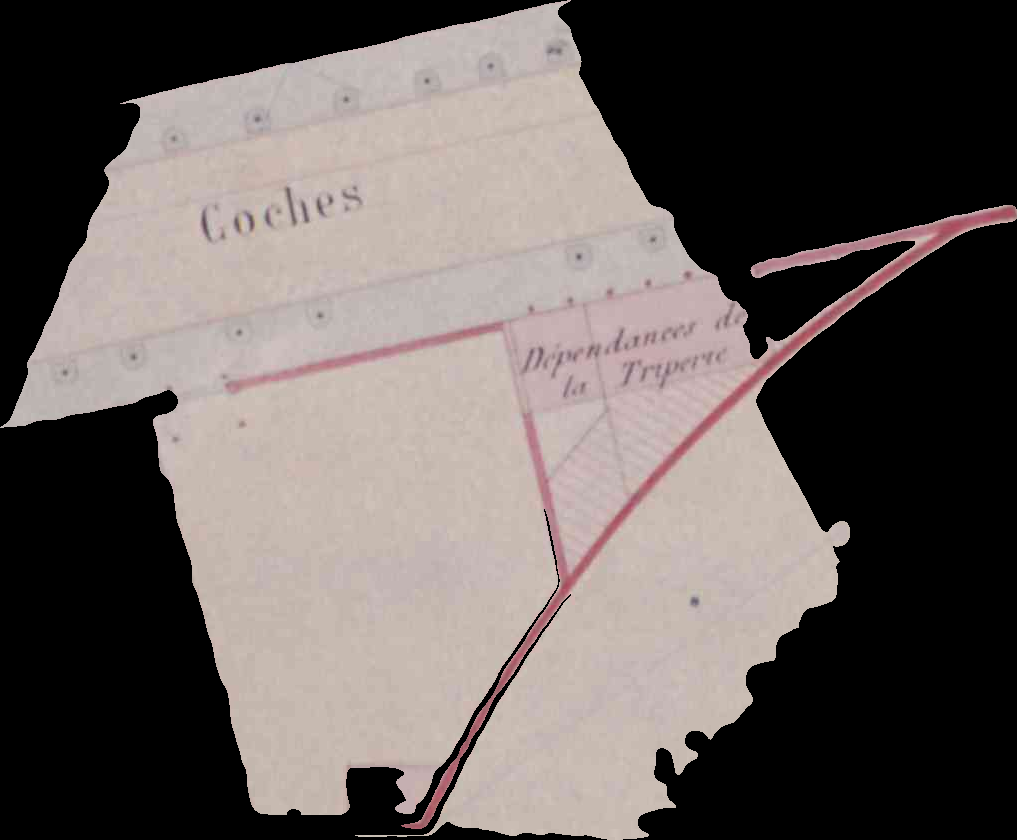 Coches
Dépendances de
la Triperie